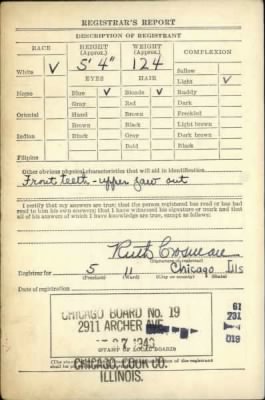 REGISTRAR'S REPORT
DESCRIPTION OF REGISTRANT
RACE HEIGHT (Approx.) WEIGHT (Approx.) COMPLEXION
5' 4" 124
White ✓ Sallow
EYES HAIR Light ✓
Negro Blue ✓ Blonde ✓ Ruddy
Gray Red Dark
Oriental Hazel Black Freckled
Brown Brown Light brown
Indian Black Gray Dark brown
Bald Black
Filipino
Other obvious physical characteristics that will aid in identification
Front teeth - upper jaw out
I certify that my answers are true; that the person registered has read or has had
read to him his own answers; that I have witnessed his signature or mark and that
all of his answers of which I have knowledge are true, except as follows:
Ruth
(Signature of registrar)
Registrar for 5 11 Chicago Ills
(Precinct) (Ward) (City or county) (State)
Date of registration
CHICAGO BOARD No. 19
2911 ARCHER AVE
STAMP OF LOCAL BOARD
CHICAGO, COOK CO.
ILLINOIS.
61
731
019